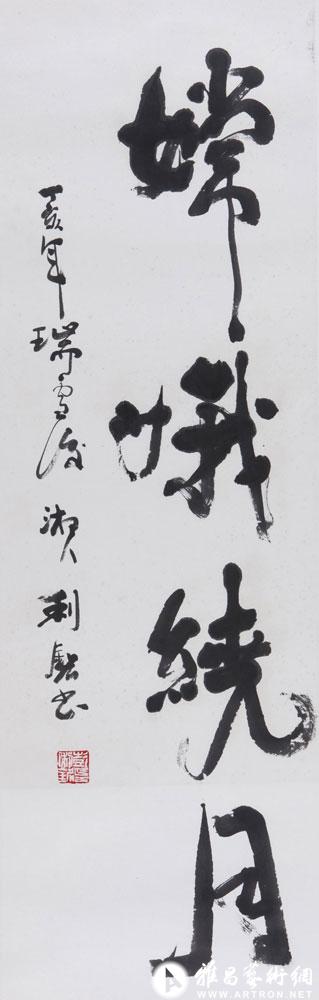 嫦娥绕月
丁亥年瑞雪後 湘人利铭书
雅昌藝術網
WWW.ARTRON.NET